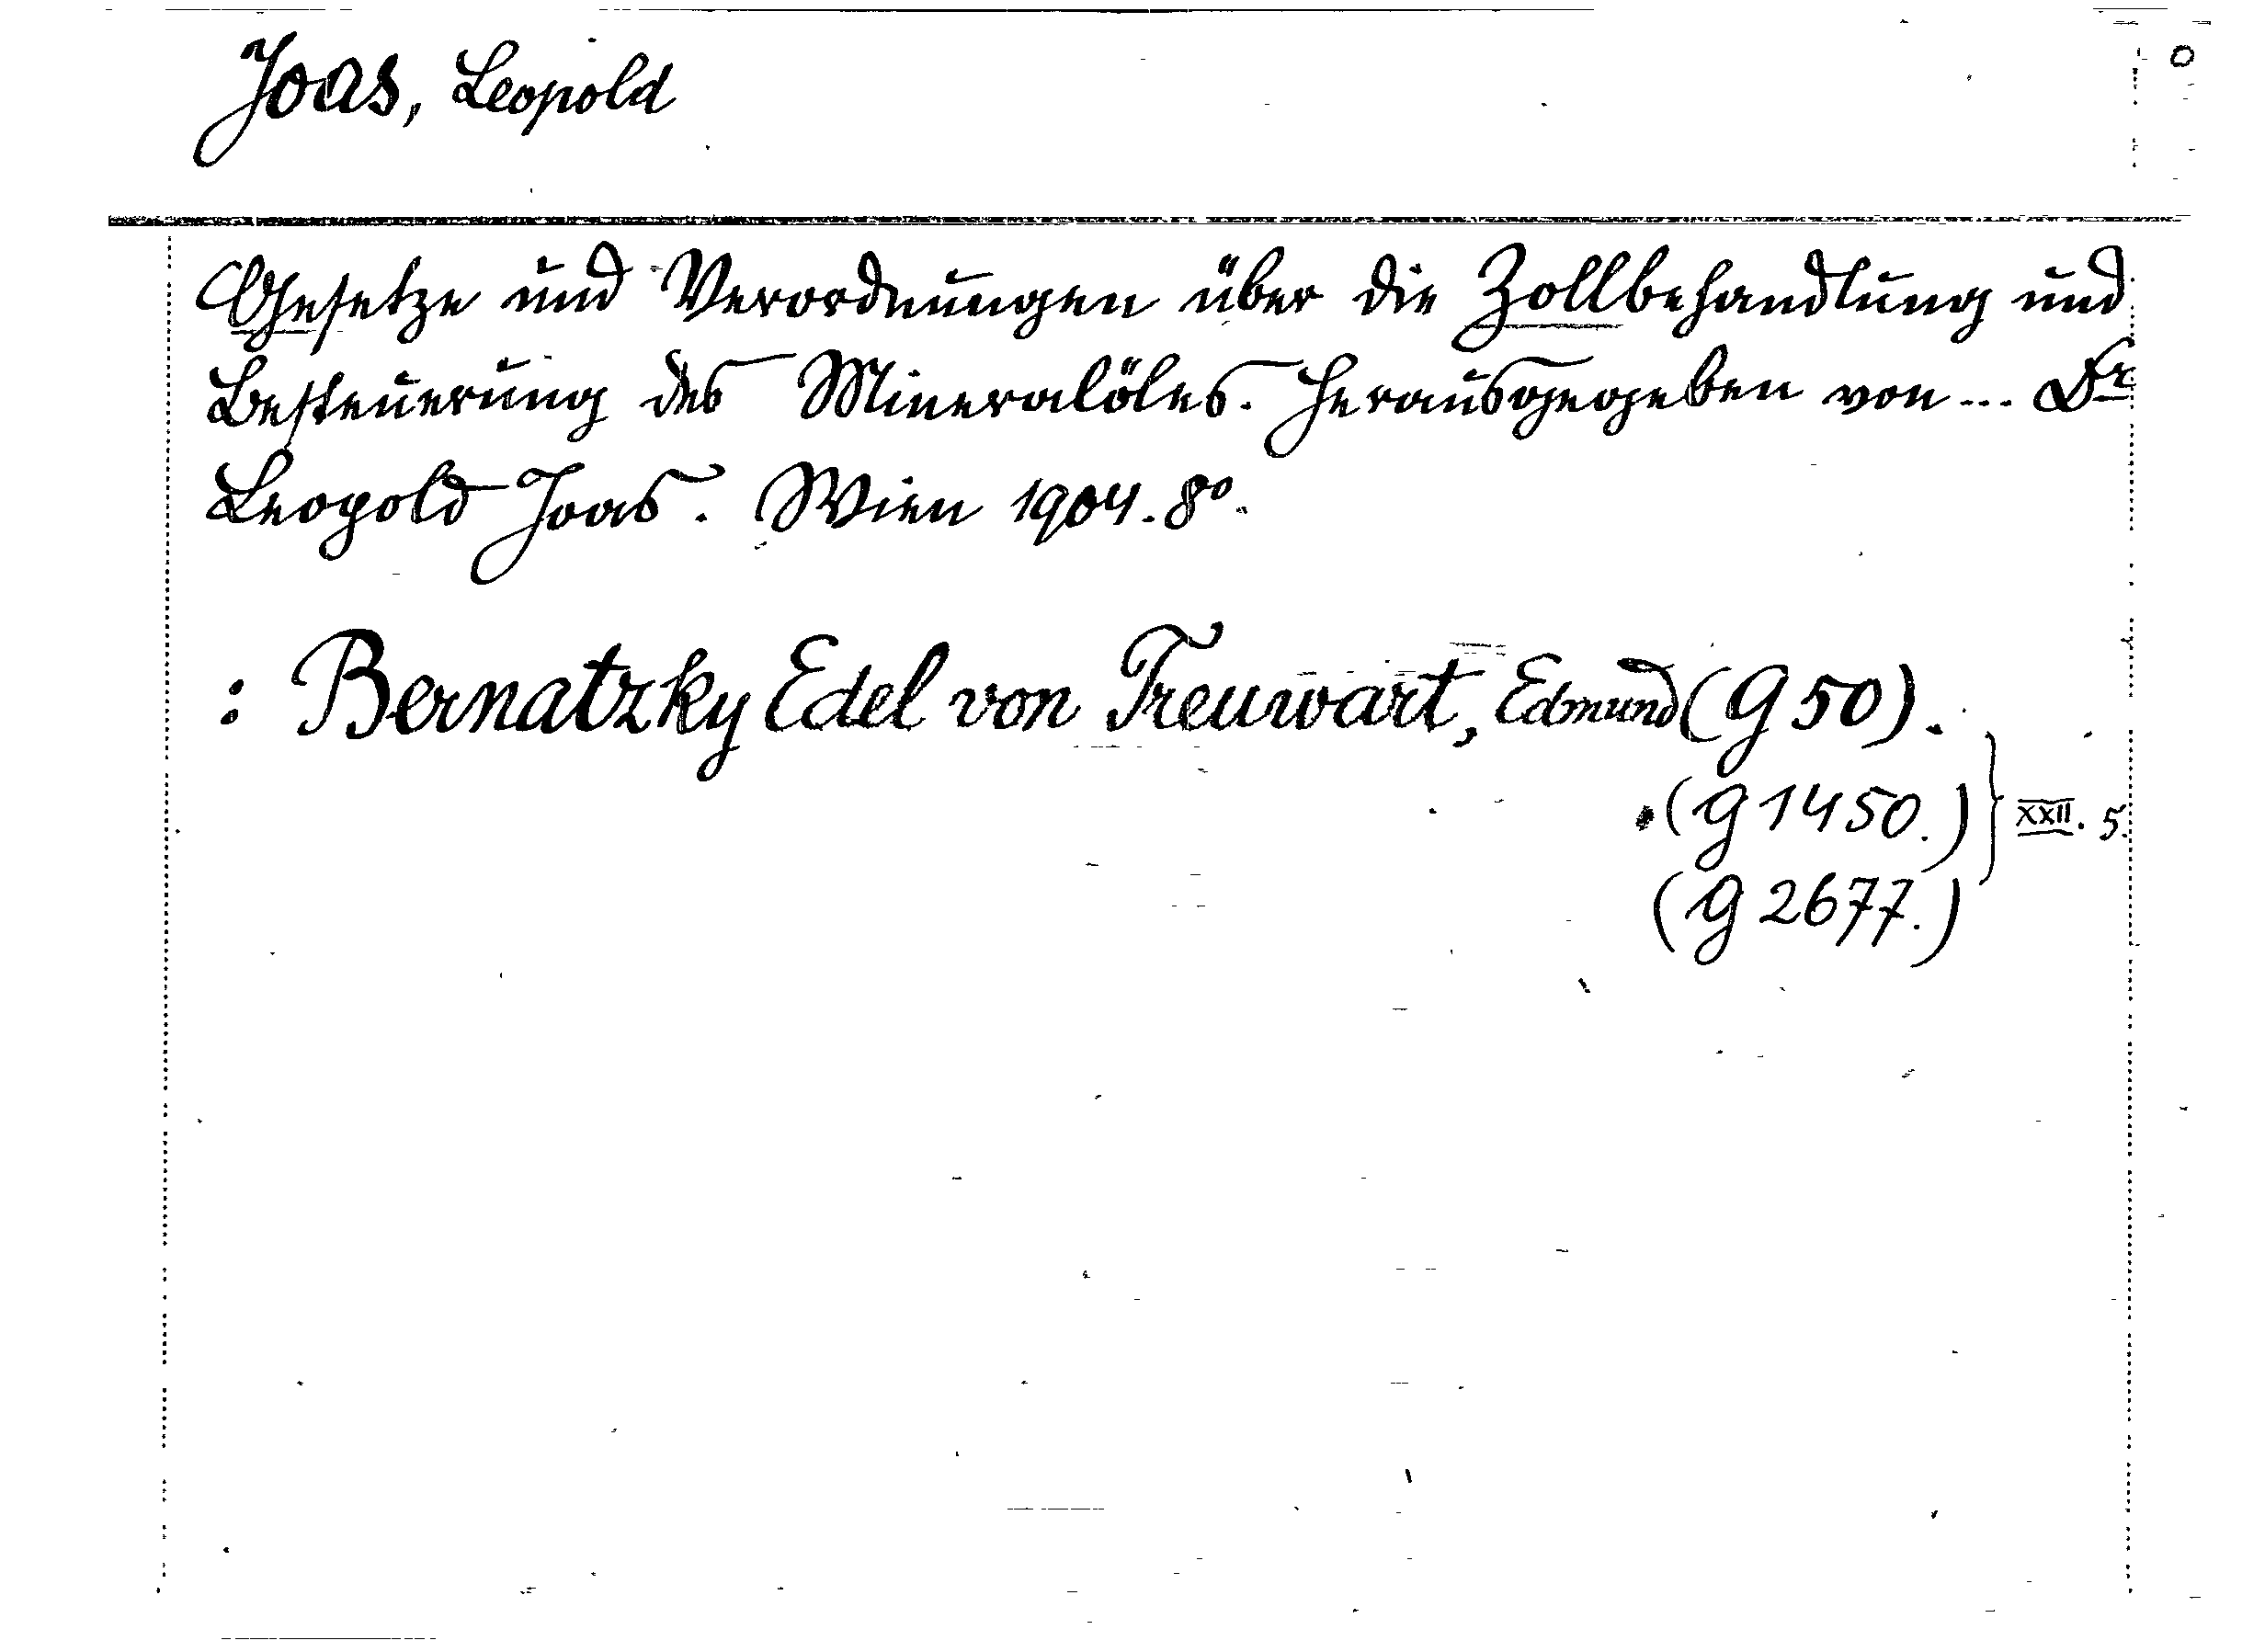 Joas, Leopold
Gesetze und Verordnungen über die Zollbehandlung und
Besteuerung des Mineralöles. Herausgegeben von ... Dr
Leopold Joas. Wien 1904. 8°.
: Bernatzky Edel von Treuwart, Edmund (G 50).
(G 1450.) } XXII. 5.
(G 2677.)